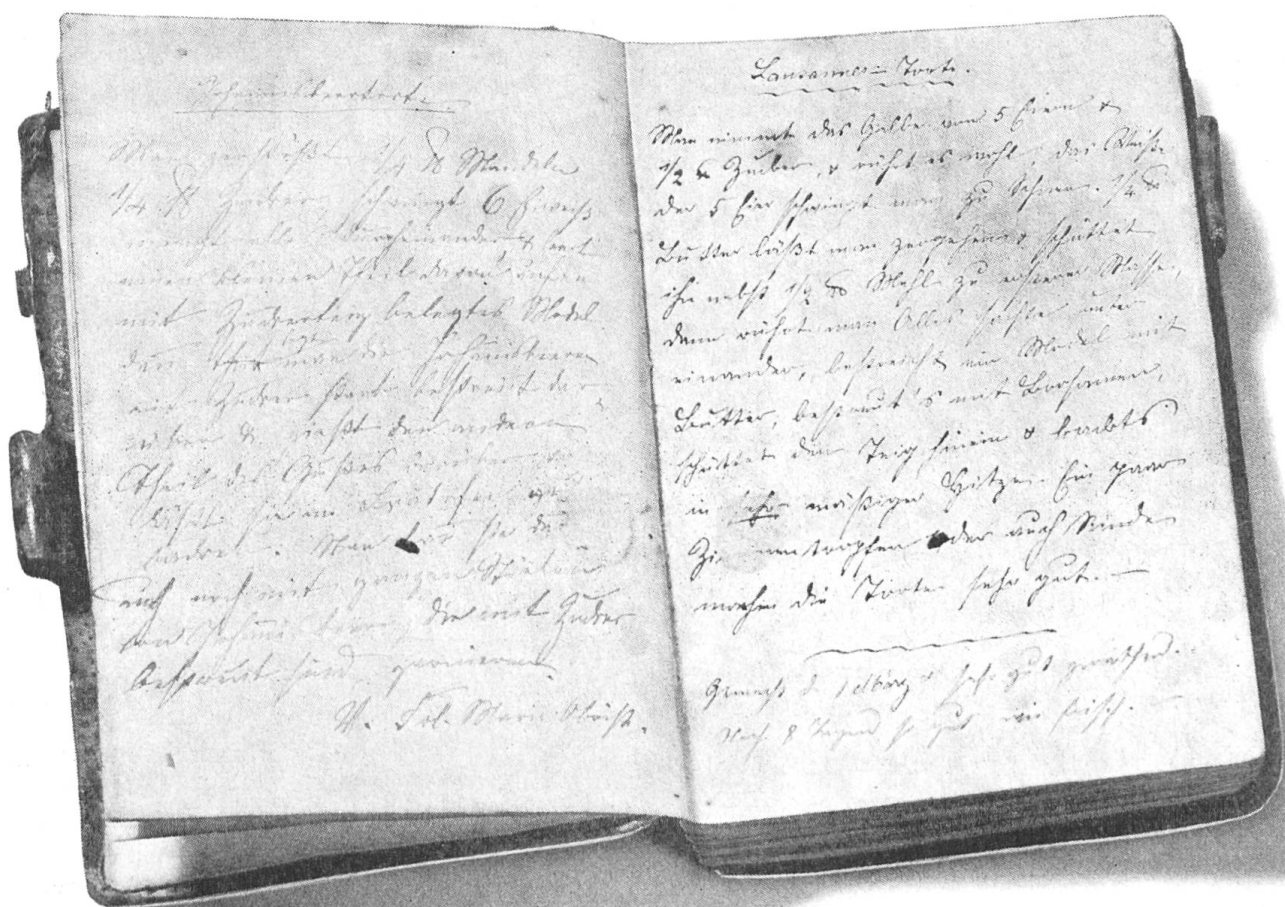 Johannisbeertorte.
Man zerstößt 1/4 ℔ Mandeln
1/4 ℔ Zucker, schwingt 6 Eiweiß
alles durcheinander &
einen kleinen Theil davon in ein
mit Zuckerteig belegtes Model
dann legt man die Johannisbeeren
mit Zucker stark bestreut dar-
über & gießt den andern
Theil des Gußes darüber
läßt sie im Bratofen
backen. Man
auch noch mit ganzen
von Johannisbeeren die mit Zucker
bestreut sind garnieren.
V. Frl. Marie
Lausanner-Torte.
Man nimmt das Gelbe von 5 Eiern &
1/2 ℔ Zucker, & rührt es wohl, das Weiße
der 5 Eier schwingt man zu Schnee. 1/4 ℔
Butter läßt man zergehen & schüttet
ihn nebst 1/2 ℔ Mehl zu ersterer Masse,
dann rührt man Alles sachte unter
einander, bestreicht ein Model mit
Butter, bestreut's mit Brosamen,
schüttet den Teig hinein & backts
in sehr mäßiger Hitze. Ein paar
oder auch Rinde
machen die Torte sehr gut.
Gemacht d. 1 März & sehr gut gerathen.
Nach 8 Tagen so gut wie frisch.